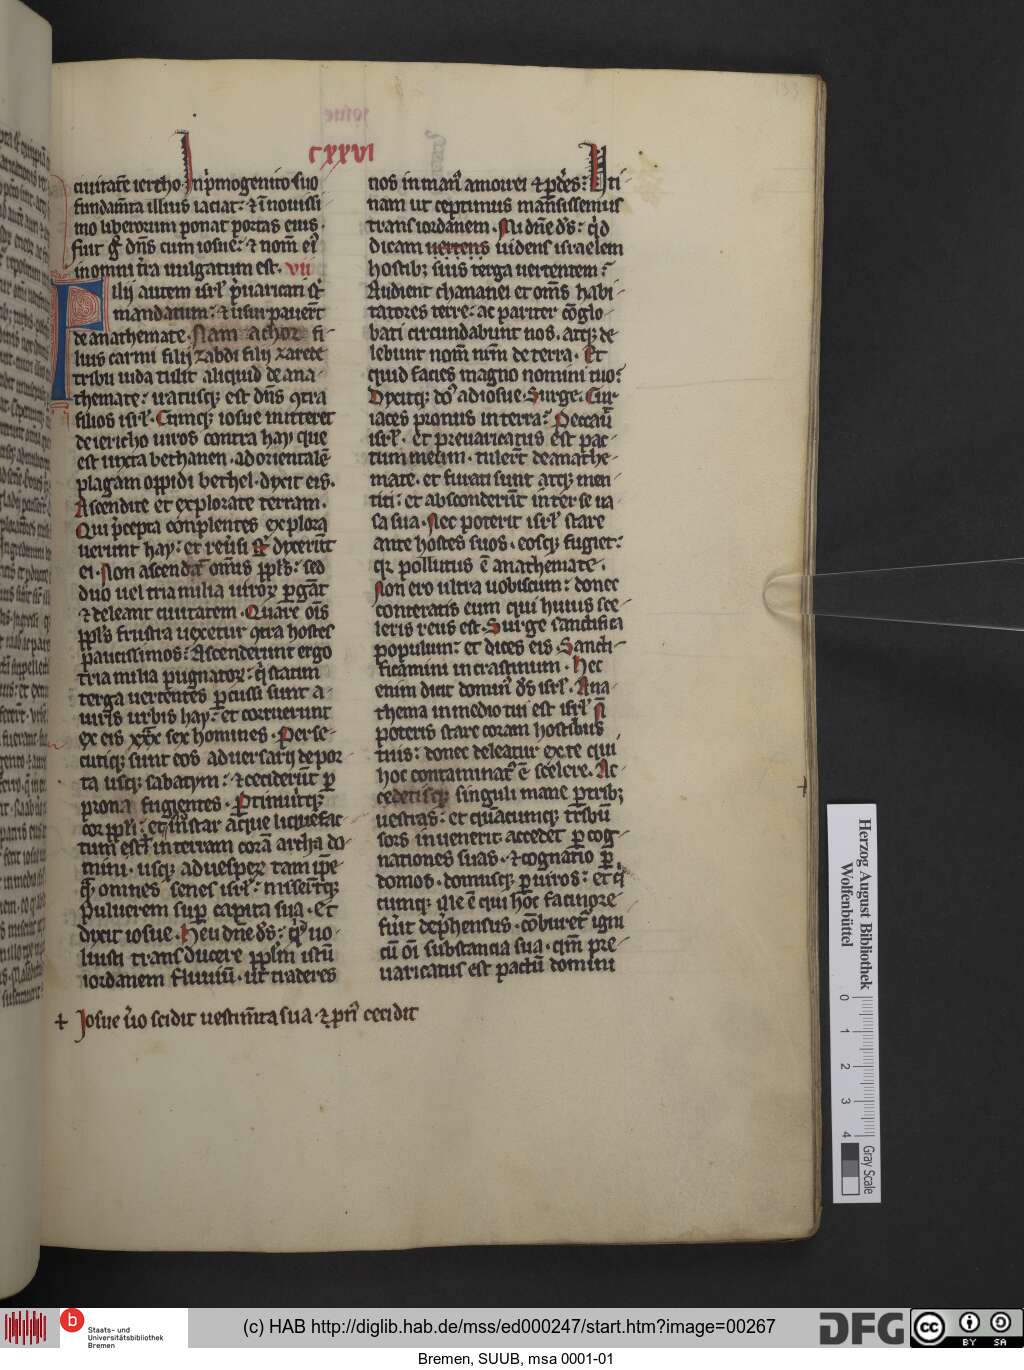 CXXVI
ciuitatē iericho. In p̄mogenito suo
fundam̄ta illius iaciat: ⁊ ī nouissi
mo liberorum ponat portas eius.
fuit gͦ dn̄s cum iosue: ⁊ nom̄ eiꝰ
in omni t̄ra uulgatum est. vii
Filij autem isrl̄ p̄uaricati st̄
mandatum: ⁊ usurpauer̄t
de anathemate. Nam achor fi
lius carmi filij zabdi filij zarede
tribu iuda tulit aliquid de ana
themate: iratusqꝫ est dn̄s ꝯtra
filios isrl̄. Cumqꝫ iosue mitteret
de iericho uiros contra hay que
est iuxta bethauen. ad orientalē
plagam oppidi bethel. dixit eis.
Ascendite et explorate terram.
Qui p̄cepta conplentes explora
uerunt hay: et reūsi st̄ dixerūt
ei. Non ascendat om̄is ppl̄s: sed
duo uel tria milia uiroꝝ ꝑgāt
⁊ deleant ciuitatem. Quare om̄s
ppl̄s frustra uexetur ꝯtra hostes
paucissimos: Ascenderunt ergo
tria milia pugnatoꝝ: q̄ statim
terga uertentes ꝑcussi sunt a
uiris urbis hay: et corruerunt
ex eis xxx sex homines. Perse
cutiqꝫ sunt eos aduersarij de por
ta usqꝫ sabarym: ⁊ ceciderūt ꝑ
prona fugientes. Ptimuitqꝫ
cor ppl̄i: et instar aque liquefac
tum est in terram corā archa do
mini. usqꝫ ad uesperꝝ tam ip̄e
q̄ omnes senes isrl̄: miserūtqꝫ
puluerem suꝑ capita sua. Et
dixit iosue. Heu dn̄e ds̄: q̄d uo
luisti transducere ppl̄m istū
iordanem fluuiū. ut traderes
+ Josue ūo scidit uestim̄ta sua. ⁊ pn̄ꝰ cecidit
nos in manꝰ amorrei ⁊ ꝑdes: Uti
nam ut cepimus mansissemus
trans iordanem. Mi dn̄e ds̄: q̄d
dicam uertens uidens israelem
hostibꝫ suis terga uertentem:
Audient chananei et om̄s habi
tatores terre: ac pariter cōglo
bati circundabunt nos. atqꝫ de
lebunt nom̄ nr̄m de terra. Et
quid facies magno nomini tuo:
Dixitqꝫ dn̄s ad iosue. Surge. Cur
iaces pronus in terra: Peccauit
isrl̄. et preuaricatus est pac
tum meum. tuler̄t de anathe
mate. et furati sunt atqꝫ men
titi: et absconderūt inter se ua
sa sua. Nec poterit isrl̄ stare
ante hostes suos. eosqꝫ fugiet:
qꝛ pollutus ē anathemate.
Non ero ultra uobiscum: donec
conteratis eum qui huius sce
leris reus est. Surge sanctifica
populum: et dices eis. Sancti
ficamini in crastinum. Hec
enim dicit dominꝰ ds̄ isrl̄. Ana
thema in medio tui est isrl̄ n̄
poteris stare coram hostibus
tuis: donec deleatur ex te qui
hoc contaminatꝰ ē scelere. Ac
cedetisqꝫ singuli mane ꝑ tribꝫ
uestras: et quamcumqꝫ tribū
sors inuenerit. accedet ꝑ cog
nationes suas. ⁊ cognatio ꝑ
domos. domusqꝫ ꝑ uiros: et q̄
cumqꝫ ille ē qui hoc facinore
fūit dep̄hensus. cōburetꝰ igni
cū om̄i substancia sua. qm̄ pre
uaricatus est pactū domini
Herzog August Bibliothek
Wolfenbüttel
0
1
2
3
4
Gray Scale
b
Staats- und
Universitätsbibliothek
Bremen
(c) HAB http://diglib.hab.de/mss/ed000247/start.htm?image=00267
DFG
cc
BY SA
Bremen, SUUB, msa 0001-01